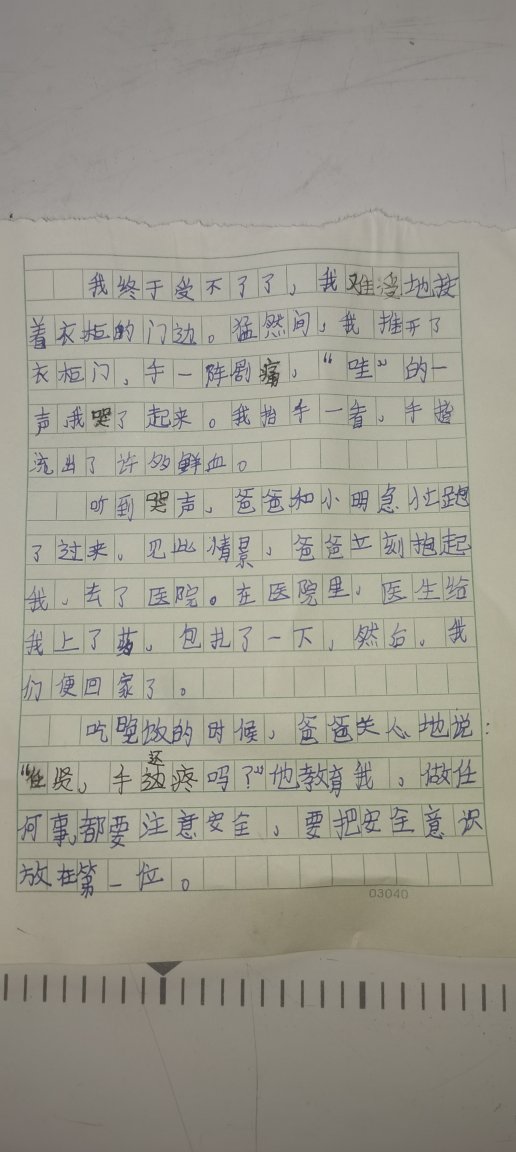 我终于受不了了，我难受地扶
着衣柜的门边。猛然间，我推开了
衣柜门，手一阵剧痛，“哇”的一
声，我哭了起来。我抬手一看，手指
流出了许多鲜血。
听到哭声，爸爸和小明急忙跑
了过来。见此情景，爸爸立刻抱起
我，去了医院。在医院里，医生给
我上了药，包扎了一下，然后，我
们便回家了。
吃晚饭的时候，爸爸关心地说：
“任贤，手还疼吗？”他教育我，做任
何事都要注意安全，要把安全意识
放在第一位。
03040